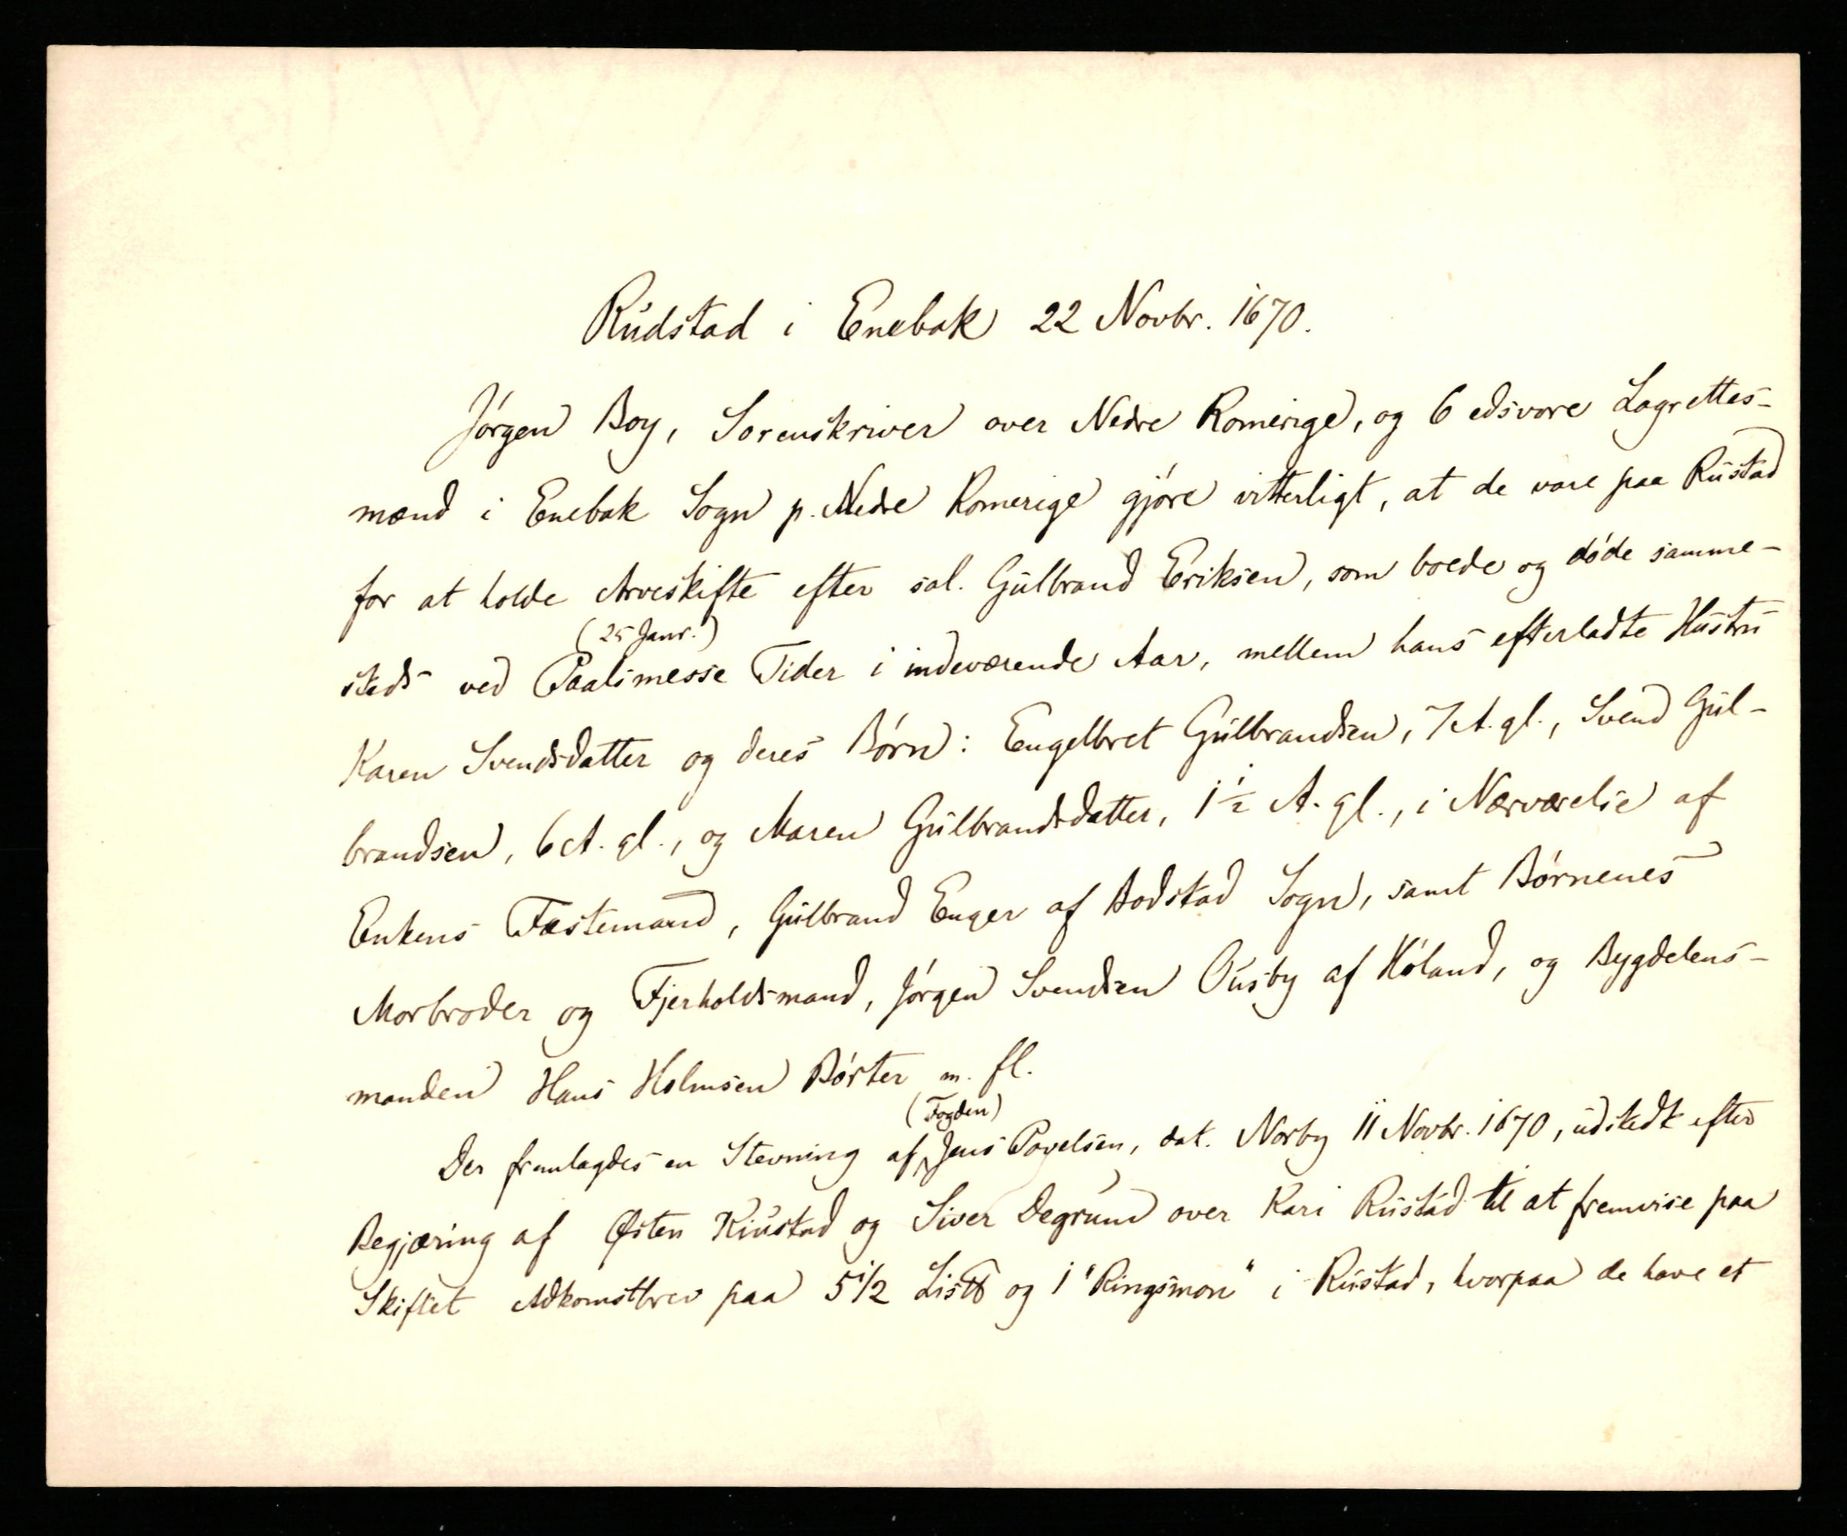 Rudstad i Enebak 22 Novbr. 1670.
Jörgen Boy, Sorenskriver over Nedre Romerige, og 6 edsvore Lagrettes-
mænd i Enebak Sogn p. Nedre Romerige gjöre vitterligt, at de vare paa Rustad
for at holde Arveskifte efter sal. Gulbrand Eriksen, som boede og döde samme-
(25 Janr.)
steds ved Paalsmesse Tider i indeværende Aar, mellem hans efterladte Hustru
Karen Svendsdatter og deres Börn: Engelbret Gulbrandsen, 7 A. gl., Svend Gul-
brandsen, 6 A. gl., og Maren Gulbrandsdatter, 1 1/2 A. gl., i Nærværelse af
Enkens Fæstemand, Gulbrand Enger af Bodstad Sogn, samt Börnenes
Morbroder og Fjerholdsmand, Jörgen Svendsen Ousby af Höland, og Bygdelens-
manden Hans Holmsen Börter m. fl.
(Fogden)
Der fremlagdes en Stevning af Jens Povelsen, dat. Norby 11 Novbr. 1670, udstedt efter
Begjæring af Østen Kiustad og Siver Degrum over Kari Rustad til at fremvise paa
Skiftet Adkomstbrev paa 5 1/2 Lis℔ og 1 "Ringsmon" i Rustad, hvorpaa de have et